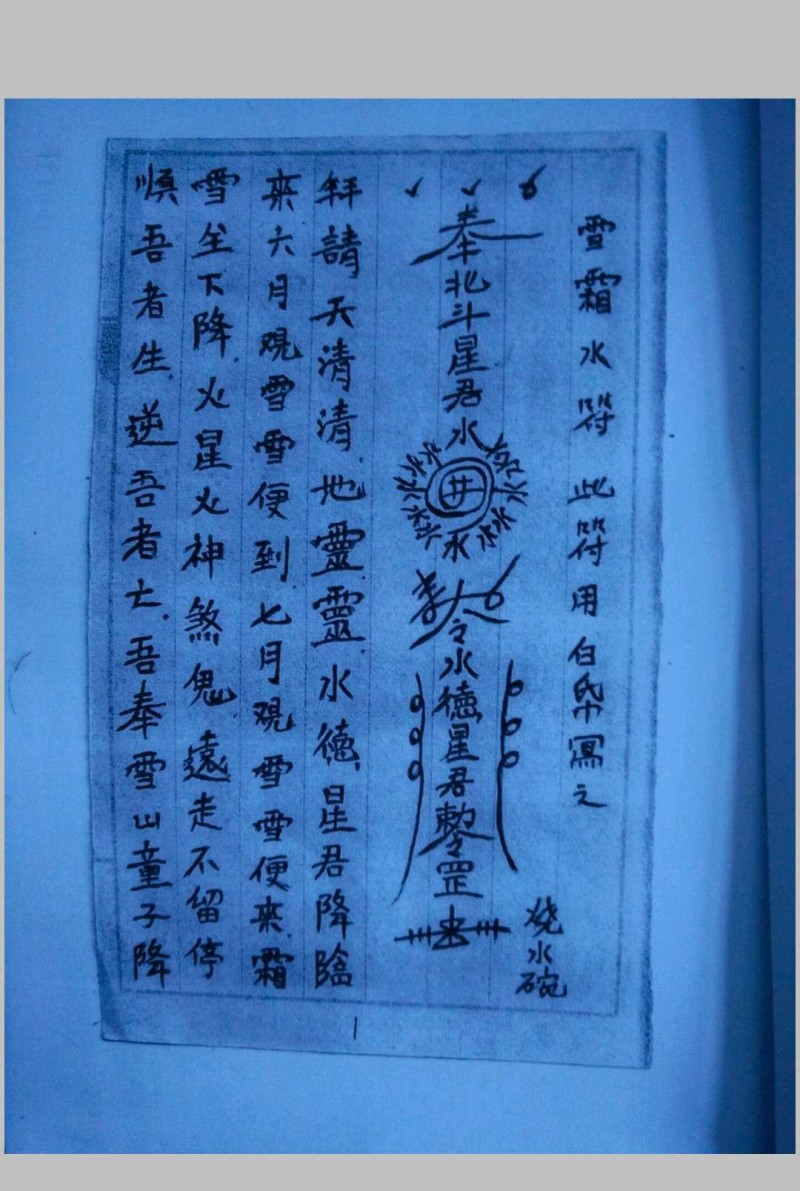 雪霜水符此符用白帋冩之
奉北斗星君水井水令水德星君勅令罡
燒水碗
拜請天清清地靈靈水德星君降臨
来六月观雪雪便到七月观雪雪便来霜
雪坐下降火星火神煞鬼遠走不留停
順吾者生逆吾者亡吾奉雪山童子降
1